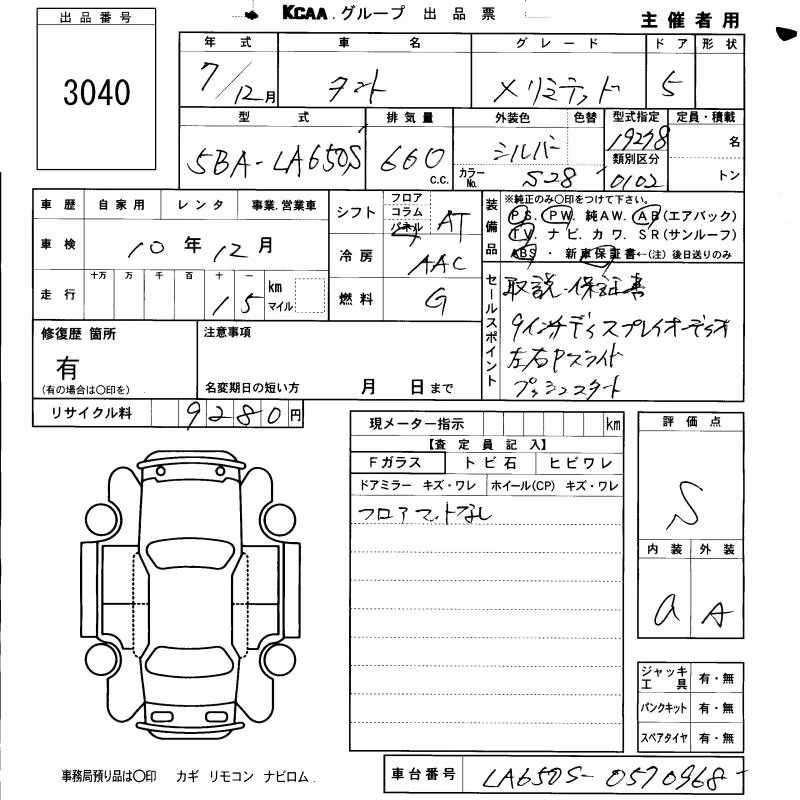 KCAA.グループ 出品票
主催者用
出品番号
3040
年式 車名 グレード ドア 形状
7/12月 タント Xリミテッド 5
型式 排気量 外装色 色替 型式指定 定員・積載
5BA-LA650S 660 c.c. シルバー 19278 名
カラーNo. S28 類別区分 0102 トン
車歴 自家用 レンタ 事業.営業車
シフト フロア コラム パネル AT
装備品
※純正のみ〇印をつけて下さい。
PS. PW. 純AW. AB(エアバック)
TV. ナビ. カワ. SR(サンルーフ)
ABS ・ 新車保証書←(注) 後日送りのみ
車検 10年12月
冷房 AAC
走行 十万 万 千 百 十 一
15 km マイル
燃料 G
セールスポイント
取説・保証書
9インチディスプレイオーディオ
左右Pスライド
プッシュスタート
修復歴 箇所
有
(有の場合は〇印を)
注意事項
名変期日の短い方 月 日まで
リサイクル料 9280円
現メーター指示 km
【査定員記入】
Fガラス トビ石 ヒビワレ
ドアミラー キズ・ワレ ホイール(CP) キズ・ワレ
フロアマットなし
評価点
S
内装 外装
a A
ジャッキ工具 有・無
パンクキット 有・無
スペアタイヤ 有・無
事務局預り品は〇印 カギ リモコン ナビロム.
車台番号 LA650S-0570968